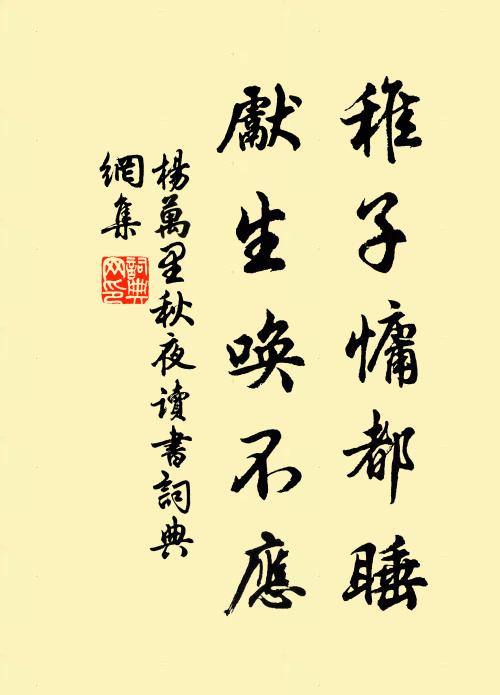 稚子慵都睡
獻生喚不應
楊萬里秋夜讀書詞典
網集
詞典
网印